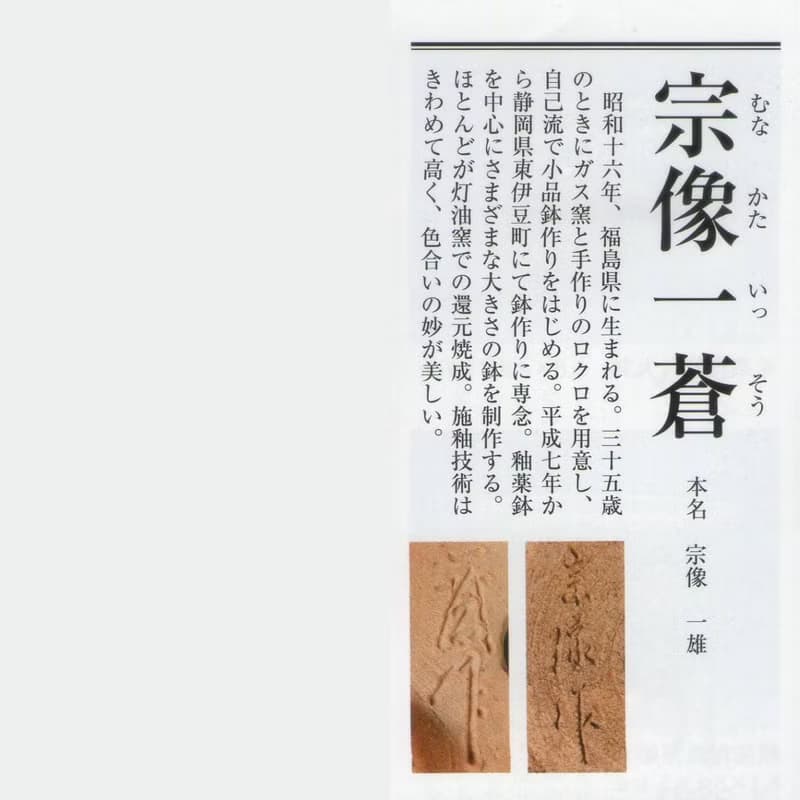 宗像一蒼
むな かた いっ そう
本名 宗像 一雄
昭和十六年、福島県に生まれる。三十五歳
のときにガス窯と手作りのロクロを用意し、
自己流で小品鉢作りをはじめる。平成七年か
ら静岡県東伊豆町にて鉢作りに専念。釉薬鉢
を中心にさまざまな大きさの鉢を制作する。
ほとんどが灯油窯での還元焼成。施釉技術は
きわめて高く、色合いの妙が美しい。
宗像作